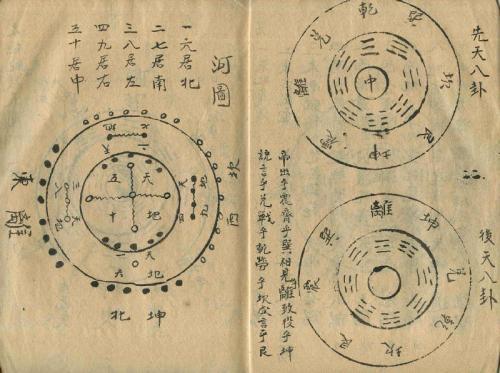 先天八卦
乾
兌
離
震
坤
艮
坎
中
後天八卦
離
坤
兌
乾
坎
艮
震
巽
帝出乎震齊乎巽相見乎離致役乎坤
説言乎兌戰乎乾勞乎坎成言乎艮
河圖
一六居北
二七居南
三八居左
四九居右
五十居中
坎
西
天
五
地
十
天
一
地
六
東
離
坤
北